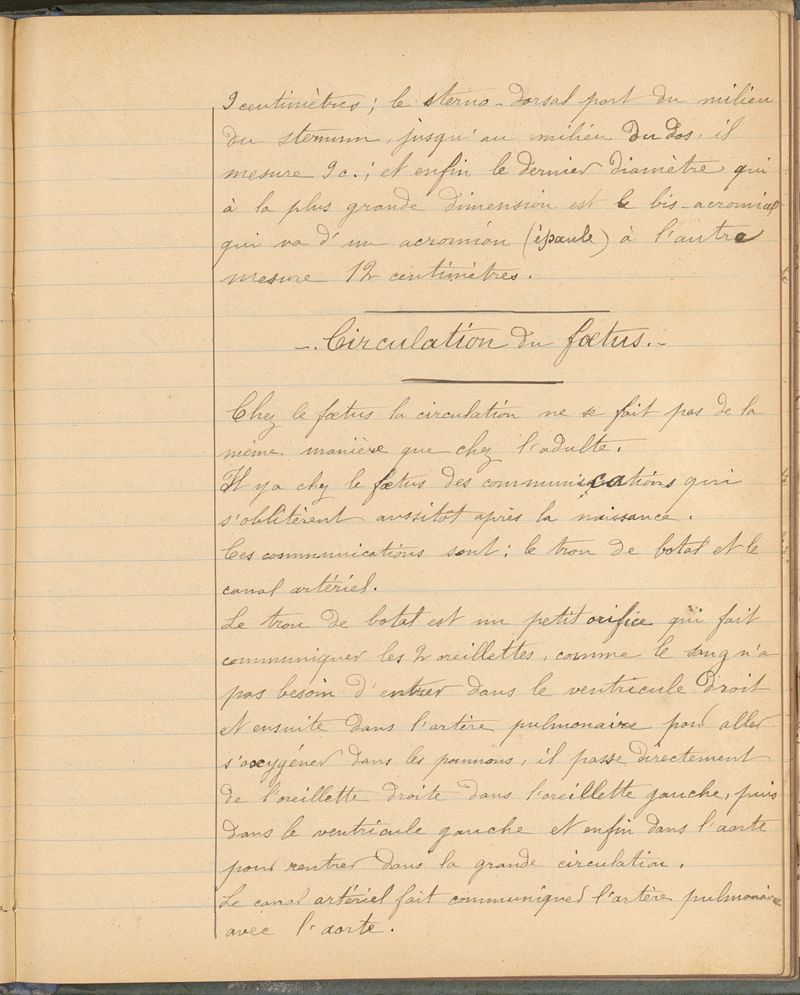 9 centimètres ; le sterno-dorsal part du milieu
du sternum, jusqu'au milieu du dos, il
mesure 9 c. ; et enfin le dernier diamètre qui
à la plus grande dimension est le bis-acromial
qui va d'un acromion (épaule) à l'autre
mesure 12 centimètres.
-. Circulation du fœtus. -
Chez le fœtus la circulation ne se fait pas de la
même manière que chez l'adulte.
Il y a chez le fœtus des communications qui
s'oblitèrent aussitôt après la naissance.
Ces communications sont : le trou de botal et le
canal artériel.
Le trou de botal est un petit orifice qui fait
communiquer les 2 oreillettes, comme le sang n'a
pas besoin d'entrer dans le ventricule droit
et ensuite dans l'artère pulmonaire pour aller
s'oxygéner dans les poumons, il passe directement
de l'oreillette droite dans l'oreillette gauche, puis
dans le ventricule gauche et enfin dans l'aorte
pour rentrer dans la grande circulation.
Le canal artériel fait communiquer l'artère pulmonaire
avec l'aorte.